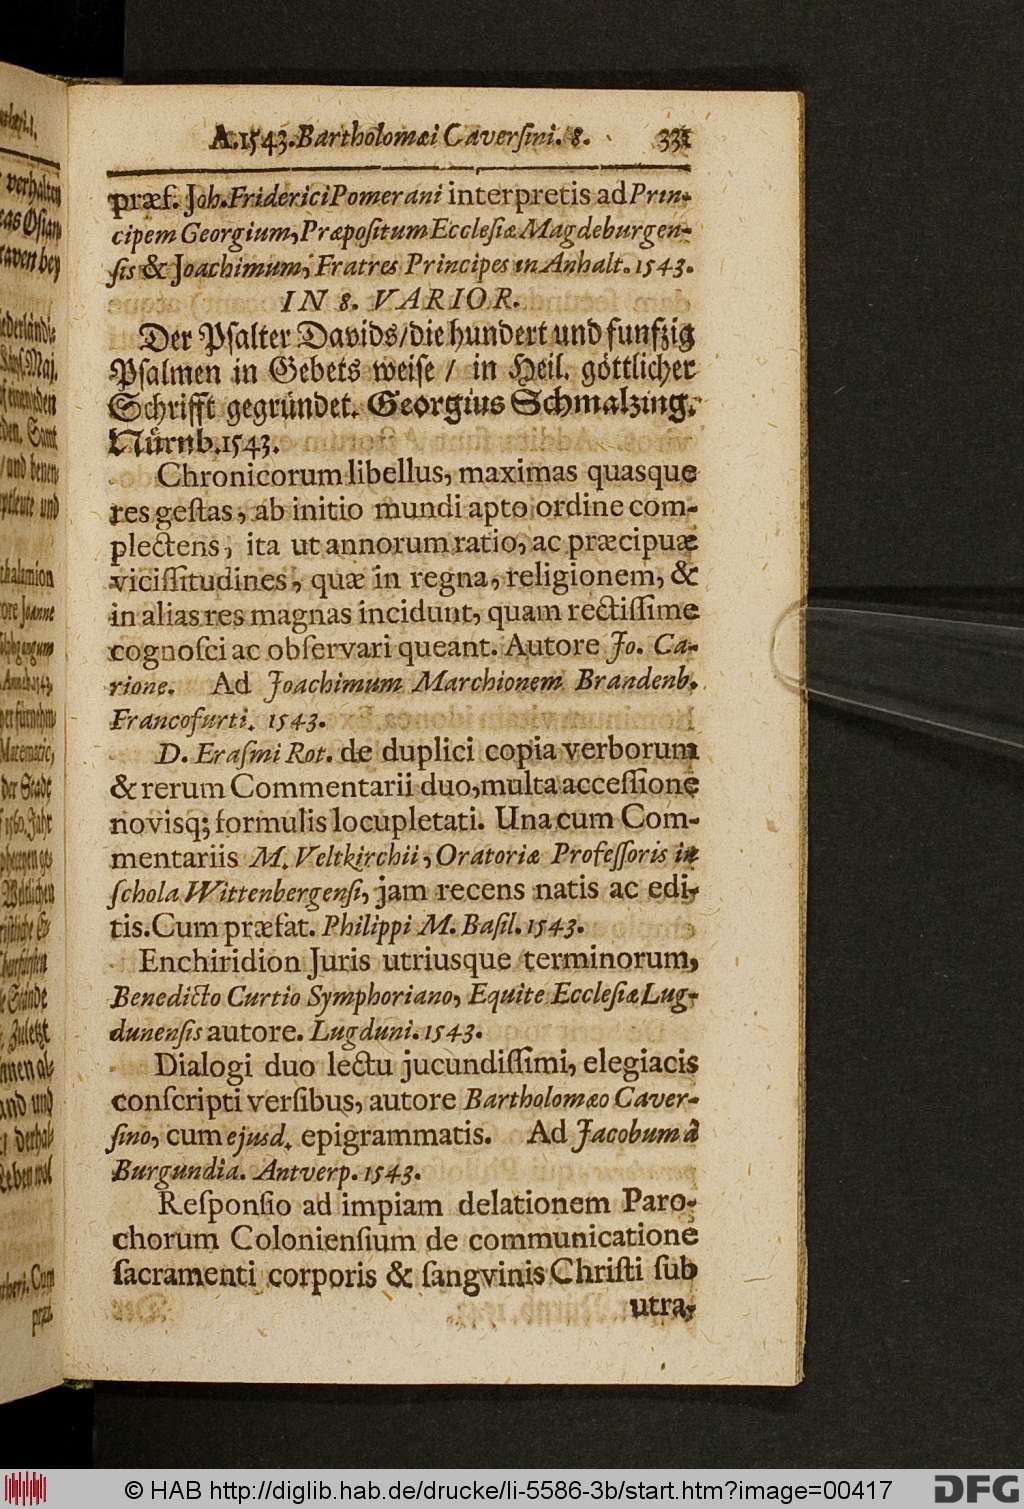 A. 1543. Bartholomæi Caverſini. 8. 331
præf. Joh. Friderici Pomerani interpretis ad Prin-
cipem Georgium, Præpoſitum Eccleſiæ Magdeburgen-
ſis & Joachimum, Fratres Principes in Anhalt. 1543.
IN 8. VARIOR.
Der Pſalter Davids/die hundert und funfzig
Pſalmen in Gebets weiſe / in Heil. göttlicher
Schrifft gegründet. Georgius Schmalzing.
Nürnb. 1543.
Chronicorum libellus, maximas quasque
res geſtas, ab initio mundi apto ordine com-
plectens, ita ut annorum ratio, ac præcipuæ
viciſſitudines, quæ in regna, religionem, &
in alias res magnas incidunt, quam rectiſſime
cognoſci ac obſervari queant. Autore Jo. Ca-
rione. Ad Joachimum Marchionem Brandenb.
Francofurti. 1543.
D. Eraſmi Rot. de duplici copia verborum
& rerum Commentarii duo, multa acceſſione
novisq; formulis locupletati. Una cum Com-
mentariis M. Veltkirchii, Oratoriæ Profeſſoris in
ſchola Wittenbergenſi, jam recens natis ac edi-
tis. Cum præfat. Philippi M. Baſil. 1543.
Enchiridion Juris utriusque terminorum,
Benedicto Curtio Symphoriano, Equite Eccleſiæ Lug-
dunenſis autore. Lugduni. 1543.
Dialogi duo lectu jucundiſſimi, elegiacis
conſcripti verſibus, autore Bartholomæo Caver-
ſino, cum ejusd. epigrammatis. Ad Jacobum à
Burgundia. Antverp. 1543.
Reſponſio ad impiam delationem Paro-
chorum Colonienſium de communicatione
ſacramenti corporis & ſangvinis Chriſti ſub
utra-
© HAB http://diglib.hab.de/drucke/li-5586-3b/start.htm?image=00417
DFG